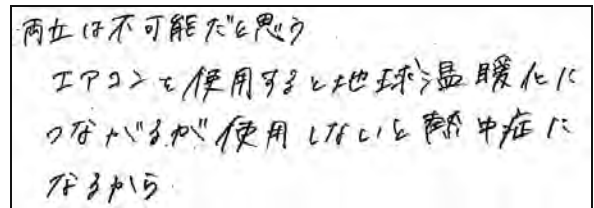 両立は不可能だと思う
エアコンを使用すると地球温暖化に
つながるが使用しないと熱中症に
なるから